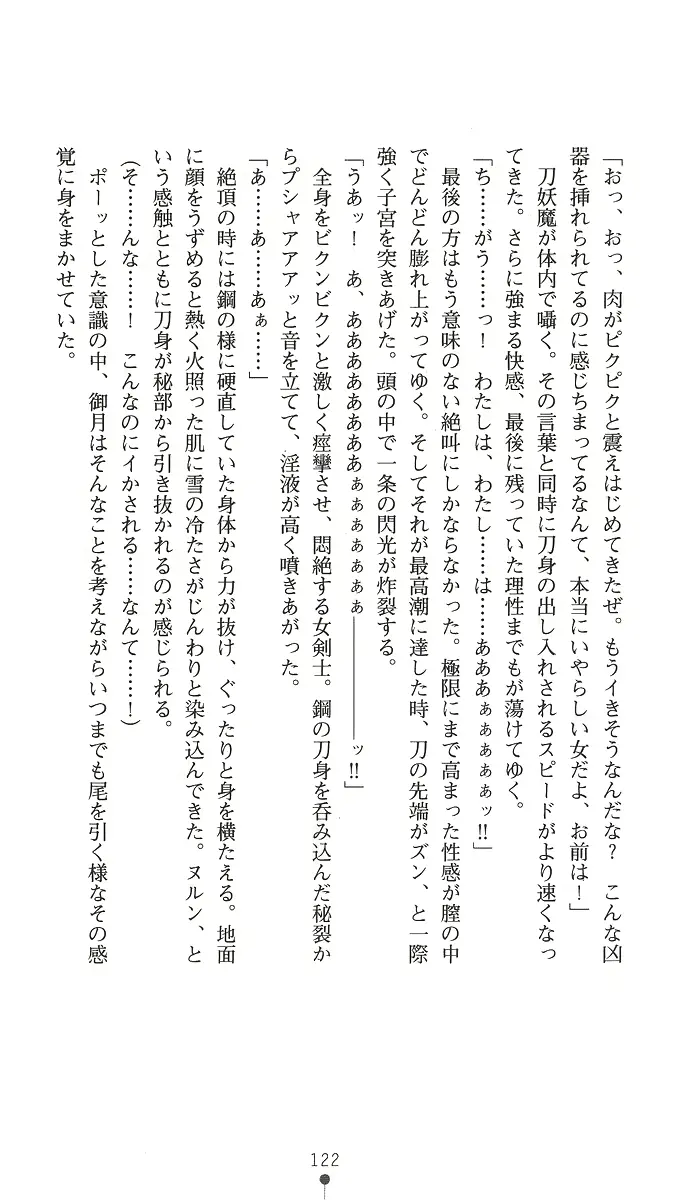 「おっ、おっ、肉がピクピクと震えはじめてきたぜ。もうイきそうなんだな？　こんな凶
器を挿れられてるのに感じちまってるなんて、本当にいやらしい女だよ、お前は！」
　刀妖魔が体内で囁く。その言葉と同時に刀身の出し入れされるスピードがより速くなっ
てきた。さらに強まる快感、最後に残っていた理性までもが蕩けてゆく。
「ち……がう……っ！　わたしは、わたし……は……あああぁぁぁぁぁッ!!」
　最後の方はもう意味のない絶叫にしかならなかった。極限にまで高まった性感が膣の中
でどんどん膨れ上がってゆく。そしてそれが最高潮に達した時、刀の先端がズン、と一際
強く子宮を突きあげた。頭の中で一条の閃光が炸裂する。
「うあッ！　あ、ああああああああぁぁぁぁぁぁぁ――――――ッ!!」
　全身をビクンビクンと激しく痙攣させ、悶絶する女剣士。鋼の刀身を呑み込んだ秘裂か
らプシャアアアッと音を立てて、淫液が高く噴きあがった。
「あ……あ……あぁ……」
　絶頂の時には鋼の様に硬直していた身体から力が抜け、ぐったりと身を横たえる。地面
に顔をうずめると熱く火照った肌に雪の冷たさがじんわりと染み込んできた。ヌルン、と
いう感触とともに刀身が秘部から引き抜かれるのが感じられる。
（そ……んな……！　こんなのにイかされる……なんて……！）
　ポーッとした意識の中、御月はそんなことを考えながらいつまでも尾を引く様なその感
覚に身をまかせていた。
122